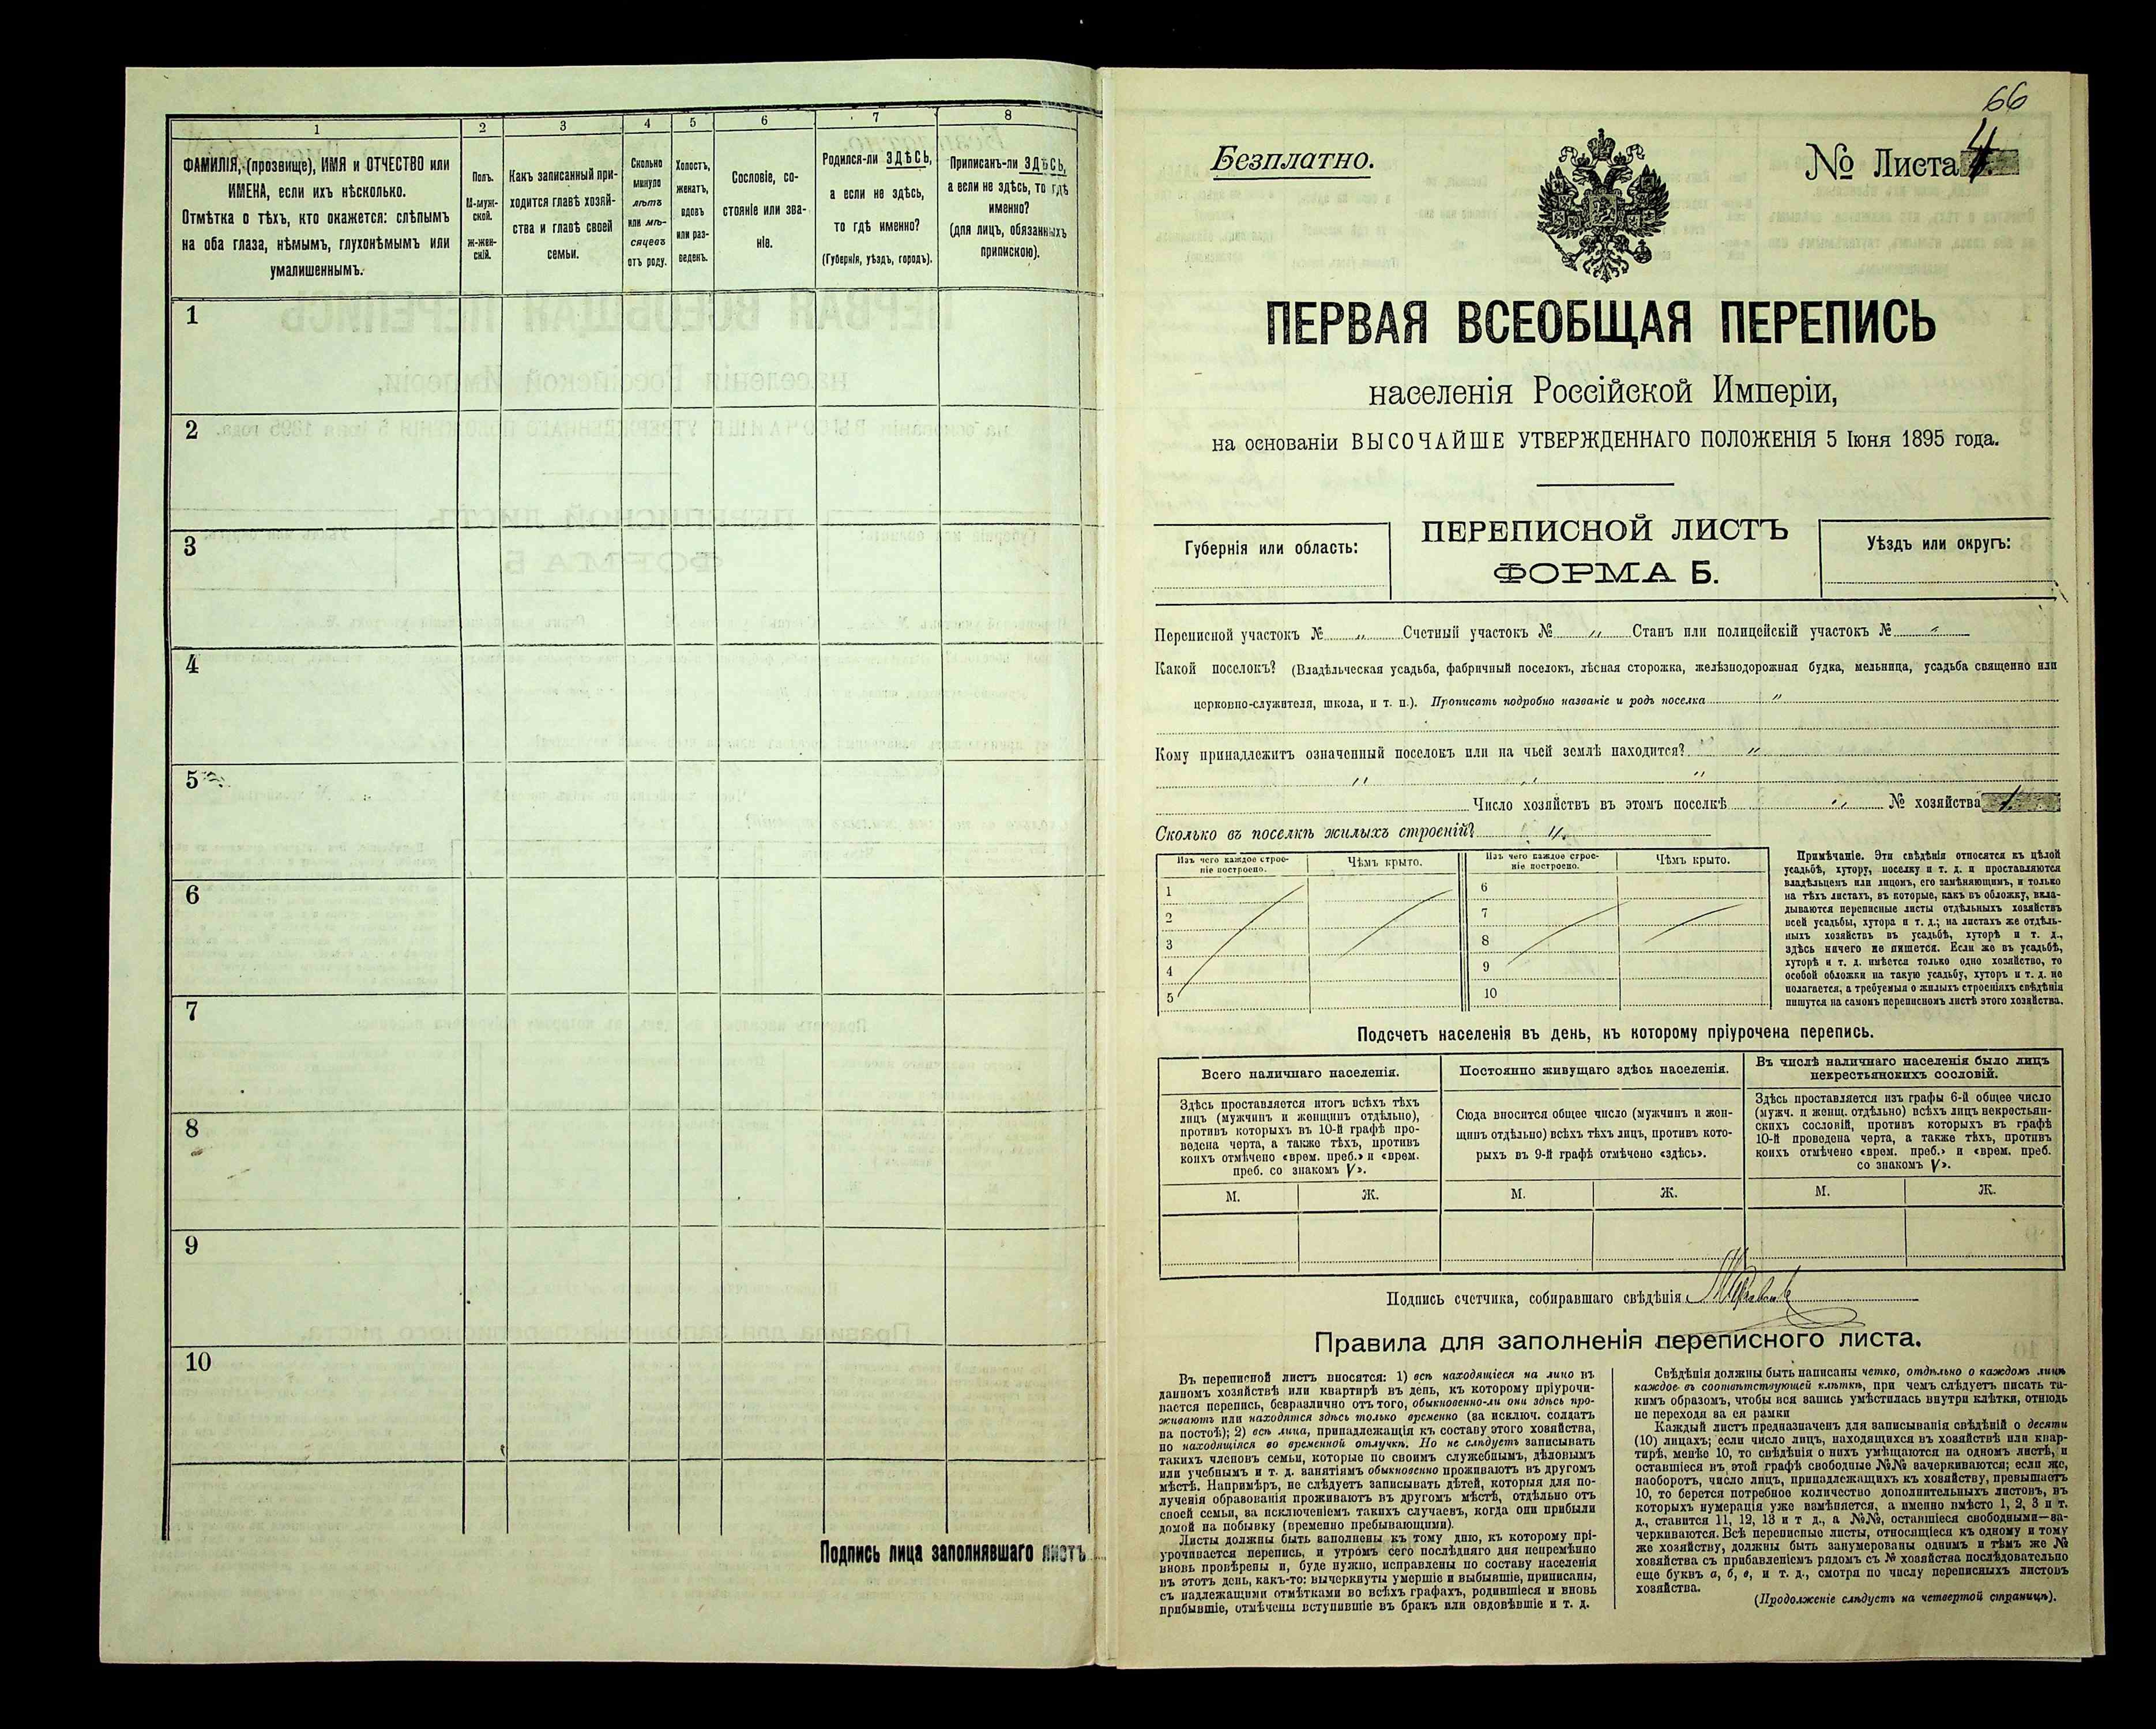 1
2
3
4
5
6
7
8
ФАМИЛІЯ, (прозвище), ИМЯ и ОТЧЕСТВО или
ИМЕНА, если ихъ нѣсколько.
Отмѣтка о тѣхъ, кто окажется: слѣпымъ
на оба глаза, нѣмымъ, глухонѣмымъ или
умалишеннымъ.
Полъ.
М-муж-
ской.
ж-жен-
скій.
Какъ записанный при-
ходится главѣ хозяй-
ства и главѣ своей
семьи.
Сколько
минуло
лѣтъ
или мѣ-
сяцевъ
отъ роду.
Холостъ,
женатъ,
вдовъ
или раз-
веденъ.
Сословіе, со-
стояніе или зва-
ніе.
Родился-ли ЗДѢСЬ,
а если не здѣсь,
то гдѣ именно?
(Губернія, уѣздъ, городъ).
Приписанъ-ли ЗДѢСЬ,
а если не здѣсь, то гдѣ
именно?
(для лицъ, обязанныхъ
припискою).
1
2
3
4
5
6
7
8
9
10
Подпись лица заполнявшаго листъ
66
Безплатно.
№ Листа 4
ПЕРВАЯ ВСЕОБЩАЯ ПЕРЕПИСЬ
населенія Россійской Имперіи,
на основаніи ВЫСОЧАЙШЕ УТВЕРЖДЕННАГО ПОЛОЖЕНІЯ 5 Іюня 1895 года.
Губернія или область:
ПЕРЕПИСНОЙ ЛИСТЪ
ФОРМА Б.
Уѣздъ или округъ:
Переписной участокъ № " Счетный участокъ № " Станъ или полицейскій участокъ № "
Какой поселокъ? (Владѣльческая усадьба, фабричный поселокъ, лѣсная сторожка, желѣзнодорожная будка, мельница, усадьба священно или
церковно-служителя, школа, и т. п.). Прописать подробно названіе и родъ поселка "
Кому принадлежитъ означенный поселокъ или на чьей землѣ находится? "
" " "
Число хозяйствъ въ этомъ поселкѣ " № хозяйства
Сколько въ поселкѣ жилыхъ строеній? "
Изъ чего каждое строе-
ніе построено.
Чѣмъ крыто.
Изъ чего каждое строе-
ніе построено.
Чѣмъ крыто.
1
2
3
4
5
6
7
8
9
10
Примѣчаніе. Эти свѣдѣнія относятся къ цѣлой
усадьбѣ, хутору, поселку и т. д. и проставляются
владѣльцемъ или лицомъ, его замѣняющимъ, и только
на тѣхъ листахъ, въ которые, какъ въ обложку, вкла-
дываются переписные листы отдѣльныхъ хозяйствъ
всей усадьбы, хутора и т. д.; на листахъ же отдѣль-
ныхъ хозяйствъ въ усадьбѣ, хуторѣ и т. д.,
здѣсь ничего не пишется. Если же въ усадьбѣ,
хуторѣ и т. д. имѣется только одно хозяйство, то
особой обложки на такую усадьбу, хуторъ и т. д. не
полагается, а требуемыя о жилыхъ строеніяхъ свѣдѣнія
пишутся на самомъ переписномъ листѣ этого хозяйства.
Подсчетъ населенія въ день, къ которому пріурочена перепись.
Всего наличнаго населенія.
Постоянно живущаго здѣсь населенія.
Въ числѣ наличнаго населенія было лицъ
некрестьянскихъ сословій.
Здѣсь проставляется итогъ всѣхъ тѣхъ
лицъ (мужчинъ и женщинъ отдѣльно),
противъ которыхъ въ 10-й графѣ про-
ведена черта, а также тѣхъ, противъ
коихъ отмѣчено «врем. преб.» и «врем.
преб. со знакомъ V».
Сюда вносится общее число (мужчинъ и жен-
щинъ отдѣльно) всѣхъ тѣхъ лицъ, противъ кото-
рыхъ въ 9-й графѣ отмѣчено «здѣсь».
Здѣсь проставляется изъ графы 6-й общее число
(мужч. и женщ. отдѣльно) всѣхъ лицъ некрестьян-
скихъ сословій, противъ которыхъ въ графѣ
10-й проведена черта, а также тѣхъ, противъ
коихъ отмѣчено «врем. преб.» и «врем. преб.
со знакомъ V».
М.
Ж.
М.
Ж.
М.
Ж.
Подпись счетчика, собиравшаго свѣдѣнія
Правила для заполненія переписного листа.
Въ переписной листъ вносятся: 1) всѣ находящіеся на лицо въ
данномъ хозяйствѣ или квартирѣ въ день, къ которому пріурочи-
вается перепись, безразлично отъ того, обыкновенно-ли они здѣсь про-
живаютъ или находятся здѣсь только временно (за исключ. солдатъ
на постоѣ); 2) всѣ лица, принадлежащія къ составу этого хозяйства,
но находящіяся во временной отлучкѣ. Но не слѣдуетъ записывать
такихъ членовъ семьи, которые по своимъ служебнымъ, дѣловымъ
или учебнымъ и т. д. занятіямъ обыкновенно проживаютъ въ другомъ
мѣстѣ. Напримѣръ, не слѣдуетъ записывать дѣтей, которыя для по-
лученія образованія проживаютъ въ другомъ мѣстѣ, отдѣльно отъ
своей семьи, за исключеніемъ такихъ случаевъ, когда они прибыли
домой на побывку (временно пребывающими).
Листы должны быть заполнены къ тому дню, къ которому прі-
урочивается перепись, и утромъ сего послѣдняго дня непремѣнно
вновь провѣрены и, буде нужно, исправлены по составу населенія
въ этотъ день, какъ-то: вычеркнуты умершіе и выбывшіе, приписаны,
съ надлежащими отмѣтками во всѣхъ графахъ, родившіеся и вновь
прибывшіе, отмѣчены вступившіе въ бракъ или овдовѣвшіе и т. д.
Свѣдѣнія должны быть написаны четко, отдѣльно о каждомъ лицѣ
каждое въ соотвѣтствующей клѣткѣ, при чемъ слѣдуетъ писать та-
кимъ образомъ, чтобы вся запись умѣстилась внутри клѣтки, отнюдь
не переходя за ея рамки
Каждый листъ предназначенъ для записыванія свѣдѣній о десяти
(10) лицахъ; если число лицъ, находящихся въ хозяйствѣ или квар-
тирѣ, менѣе 10, то свѣдѣнія о нихъ умѣщаются на одномъ листѣ, и
оставшіеся въ этой графѣ свободные №№ зачеркиваются; если же,
наоборотъ, число лицъ, принадлежащихъ къ хозяйству, превышаетъ
10, то берется потребное количество дополнительныхъ листовъ, въ
которыхъ нумерація уже измѣняется, а именно вмѣсто 1, 2, 3 и т.
д., ставится 11, 12, 13 и т д., а №№, оставшіеся свободными—за-
черкиваются. Всѣ переписные листы, относящіеся къ одному и тому
же хозяйству, должны быть занумерованы однимъ и тѣмъ же №
хозяйства съ прибавленіемъ рядомъ съ № хозяйства послѣдовательно
еще буквъ а, б, в, и т. д., смотря по числу переписныхъ листовъ
хозяйства.
(Продолженіе слѣдуетъ на четвертой страницѣ).